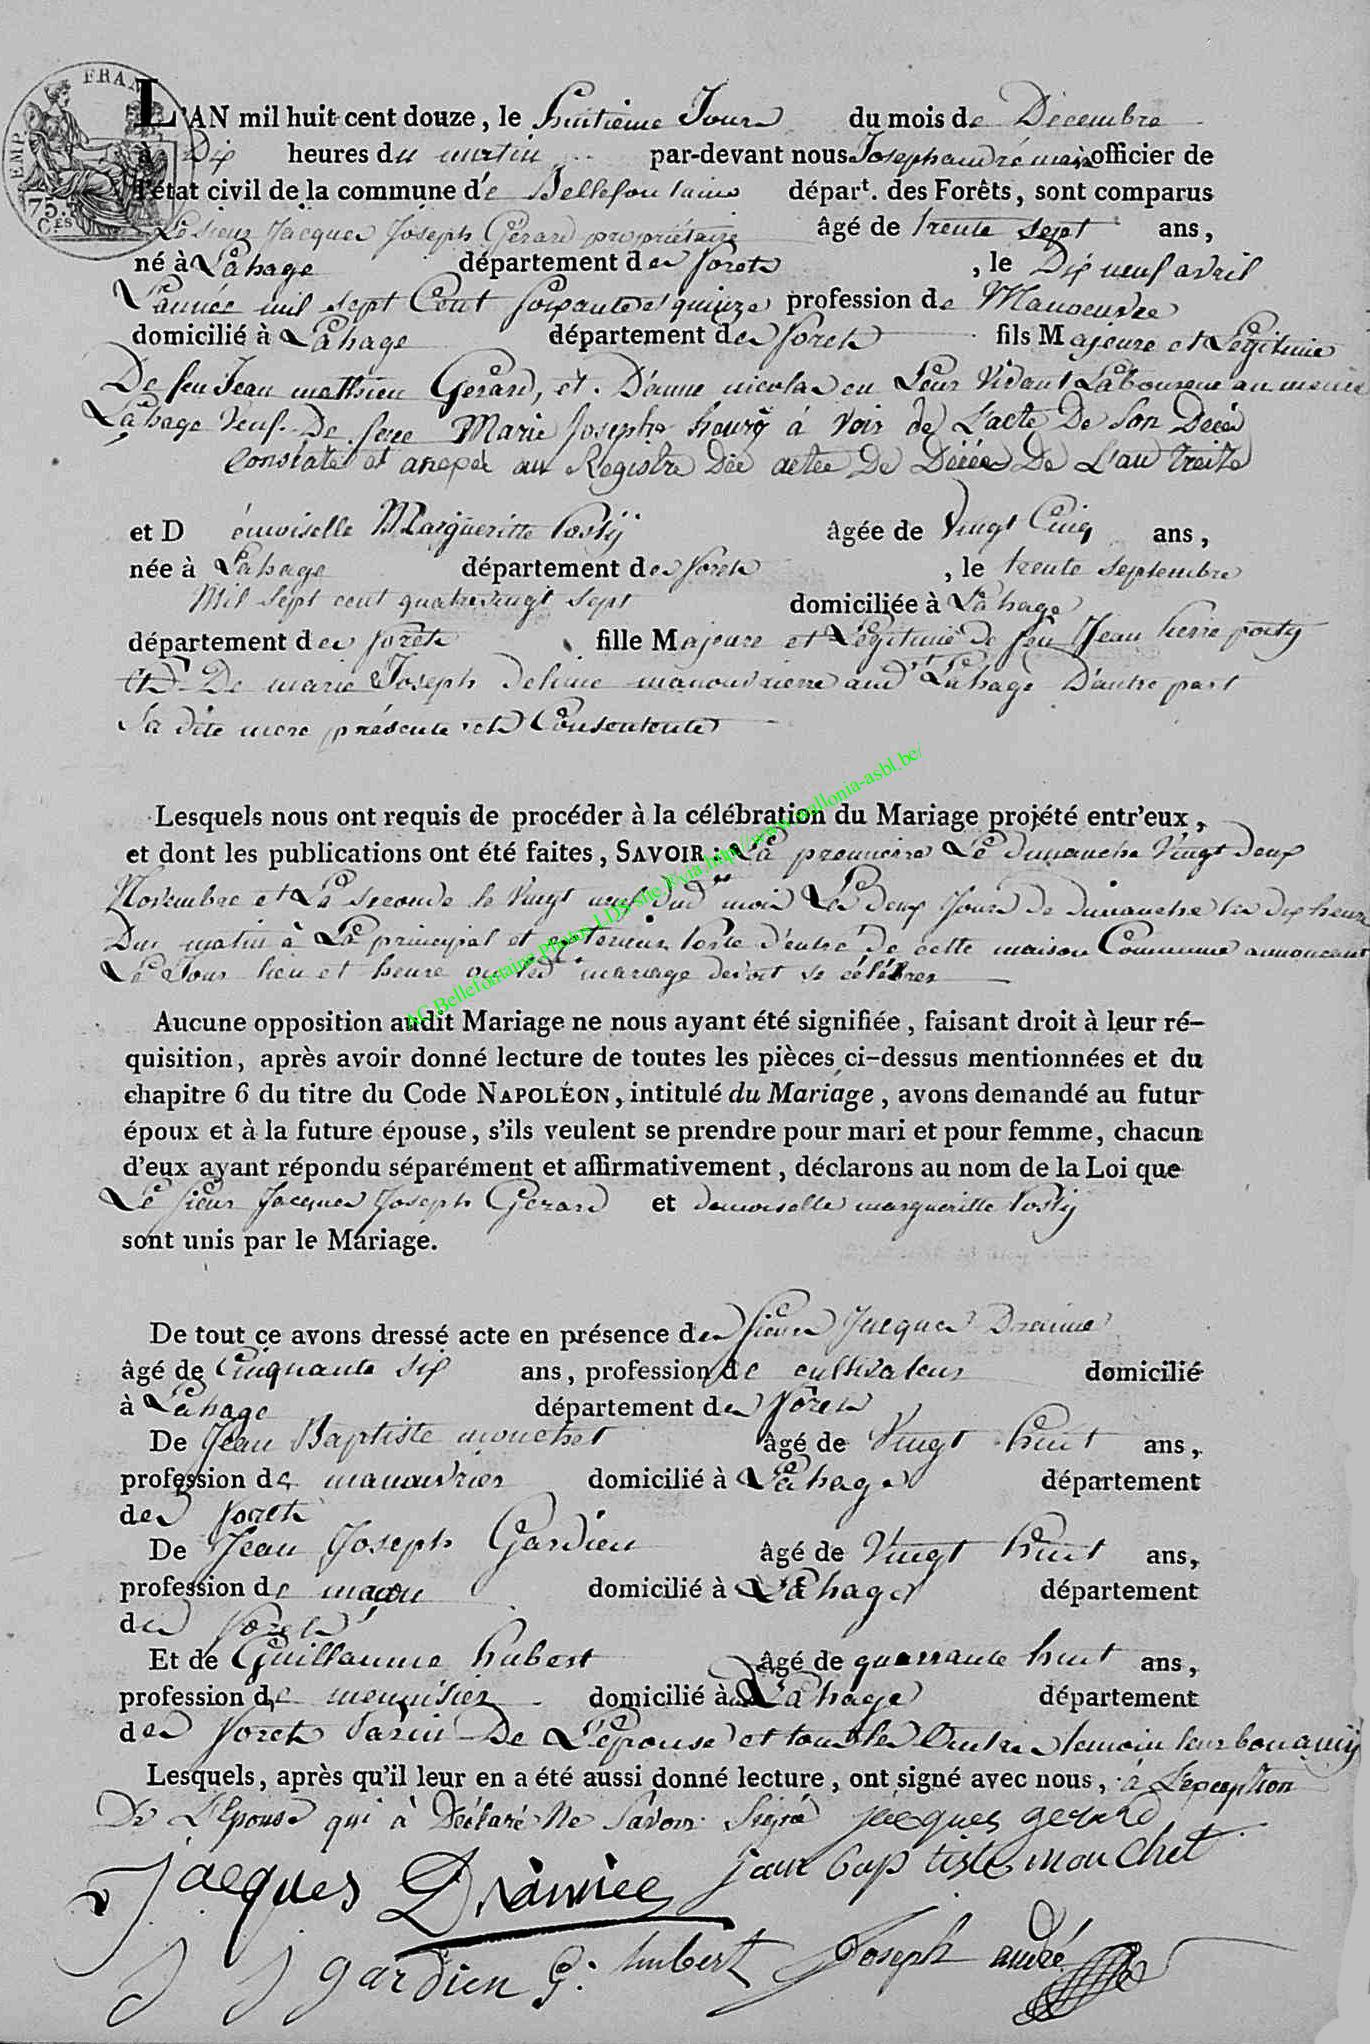 EMP. FRAN
75. CES
L'AN mil huit cent douze, le huitieme Jour du mois de Decembre
à Dix heures du matin par-devant nous Joseph andré maire officier de
l'état civil de la commune de Bellefontaine départ. des Forêts, sont comparus
Le sieur Jacques Joseph Gérard propriétaire âgé de trente sept ans,
né à Lahage département des forets, le Dix neuf avril
L'année mil sept Cent soixante et quinze profession de Manoeuvre
domicilié à Lahage département des forets fils Majeure et Légitime
De feu Jean mathieu Gerard, et D'anne nicolas en Leur Vivant Laboureur au meme
Lahage Veuf De feue Marie Josephe henry à Voir de L'acte De Son Decés
Constaté et anexée au Registre Dée actée De Décée De L'an treize
et Demoiselle Margueritte Postÿ âgée de Vingt Cinq ans,
née à Lahage département des forets, le trente septembre
Mil Sept cent quatre vingt sept domiciliée à Lahage
département des forêts fille Majeure et Légitime de feu Jean pierre postÿ
Et De marie Joseph manouvriere aud Lahage D'autre part
Sa dite mere présente et Consentente
Lesquels nous ont requis de procéder à la célébration du Mariage projété entr'eux,
et dont les publications ont été faites, SAVOIR: La premiere Le dimanche Vingt deux
Novembre et La Seconde le Vingt neuf dud mois Les deux Jours de dimanche les dix heures
Du matin à La principal et exterieur Porte d'entré de cette maison Commune annoncant
Le Jour lieu et heure ou led mariage devoit se célébrer
AC Bellefontaine Photos LDS site Fvia http://www.wallonia-asbl.be/
Aucune opposition audit Mariage ne nous ayant été signifiée, faisant droit à leur ré-
quisition, après avoir donné lecture de toutes les pièces ci-dessus mentionnées et du
chapitre 6 du titre du Code NAPOLÉON, intitulé du Mariage, avons demandé au futur
époux et à la future épouse, s'ils veulent se prendre pour mari et pour femme, chacun
d'eux ayant répondu séparément et affirmativement, déclarons au nom de la Loi que
Le sieur Jacques Joseph Gerard et demoiselle margueritte Postÿ
sont unis par le Mariage.
De tout ce avons dressé acte en présence de sieur Jacques Drainne
âgé de Cinquante six ans, profession de cultivateur domicilié
à Lahage département des Forets
De Jean Baptiste mouchet âgé de Vingt huit ans,
profession de manouvrier domicilié à Lahage département
des Forets
De Jean Joseph Gardien âgé de Vingt huit ans,
profession de macon domicilié à Lahage département
des Forets
Et de Guillaume hubert âgé de quarrante huit ans,
profession de menuisier domicilié à Lahage département
des Forets Parin De L'épouse et tous les autres temoin leur bon amiÿ
Lesquels, après qu'il leur en a été aussi donné lecture, ont signé avec nous, à L'exception
De L'Epouse qui à Déclaré Ne Savoir Signé jacques gerard
jacques Drainnée jean baptiste mouchet
J J gardien G: hubert Joseph andré